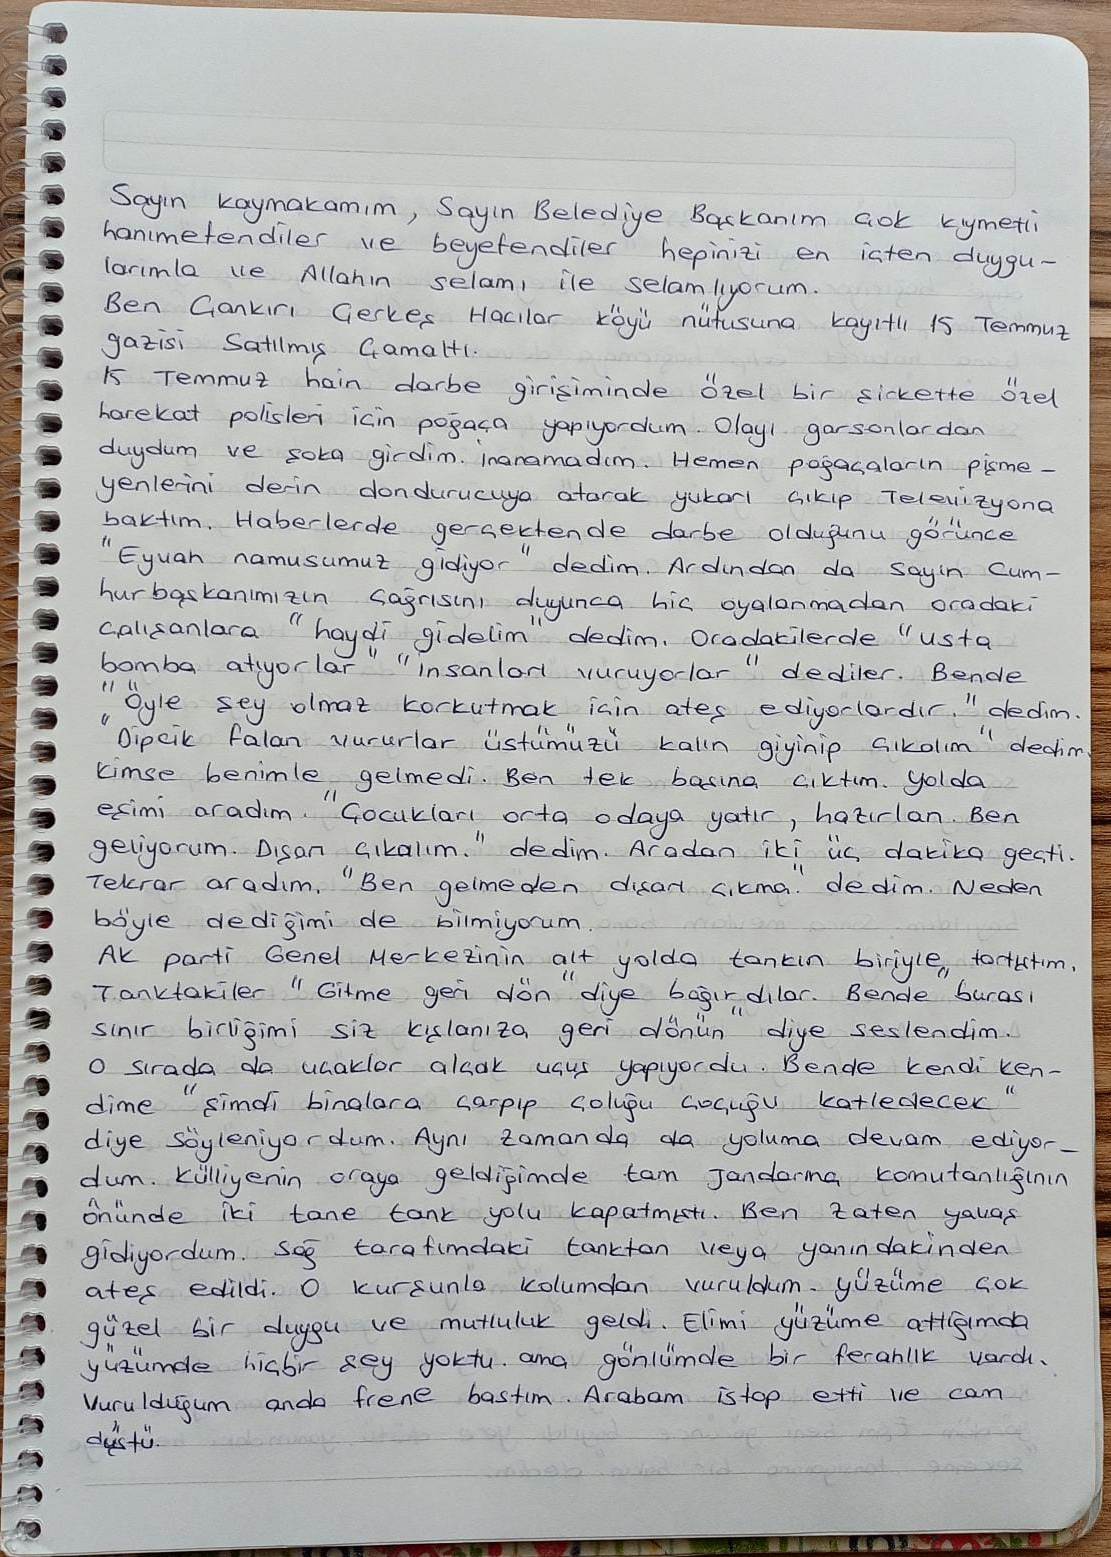 Sayın kaymakamım, Sayın Belediye Başkanım çok kıymetli
hanımefendiler ve beyefendiler hepinizi en içten duygu-
larımla ve Allahın selamı ile selamlıyorum.
Ben Çankırı Çerkeş Hacılar köyü nüfusuna kayıtlı 15 Temmuz
gazisi Satılmış Çamaltı.
15 Temmuz hain darbe girişiminde özel bir şirkette özel
harekat polisleri için poğaça yapıyordum. Olayı garsonlardan
duydum ve şoka girdim. inanamadım. Hemen poğaçaların pişme-
yenlerini derin dondurucuya atarak yukarı çıkıp Televizyona
baktım. Haberlerde gerçektende darbe olduğunu görünce
"Eyvah namusumuz gidiyor" dedim. Ardından da sayın Cum-
hurbaşkanımızın çağrısını duyunca hiç oyalanmadan oradaki
çalışanlara "haydi gidelim" dedim. Oradakilerde "usta
bomba atıyorlar" "insanları vuruyorlar" dediler. Bende
"Öyle şey olmaz korkutmak için ateş ediyorlardır." dedim.
"Dipçik falan vururlar üstümüzü kalın giyinip çıkalım" dedim.
Kimse benimle gelmedi. Ben tek başına çıktım. Yolda
eşimi aradım. "Çocukları orta odaya yatır, hazırlan. Ben
geliyorum. Dışarı çıkalım." dedim. Aradan iki üç dakika geçti.
Tekrar aradım, "Ben gelmeden dışarı çıkma." dedim. Neden
böyle dediğimi de bilmiyorum.
AK parti Genel Merkezinin alt yolda tankın biriyle tartıştım.
Tanktakiler "Gitme geri dön" diye bağırdılar. Bende "burası
sınır birliğimi siz kışlanıza geri dönün" diye seslendim.
O sırada da uçaklar alçak uçuş yapıyordu. Bende kendi ken-
dime "şimdi binalara çarpıp çoluğu çocuğu katledecek"
diye söyleniyordum. Aynı zamanda da yoluma devam ediyor-
dum. Külliyenin oraya geldiğimde tam Jandarma komutanlığının
önünde iki tane tank yolu kapatmıştı. Ben zaten yavaş
gidiyordum. Sağ tarafımdaki tanktan veya yanındakinden
ateş edildi. O kurşunla kolumdan vuruldum. yüzüme çok
güzel bir duygu ve mutluluk geldi. Elimi yüzüme attığımda
yüzümde hiçbir şey yoktu. ama gönlümde bir ferahlık vardı.
Vurulduğum anda frene bastım. Arabam istop etti ve cam
düştü.